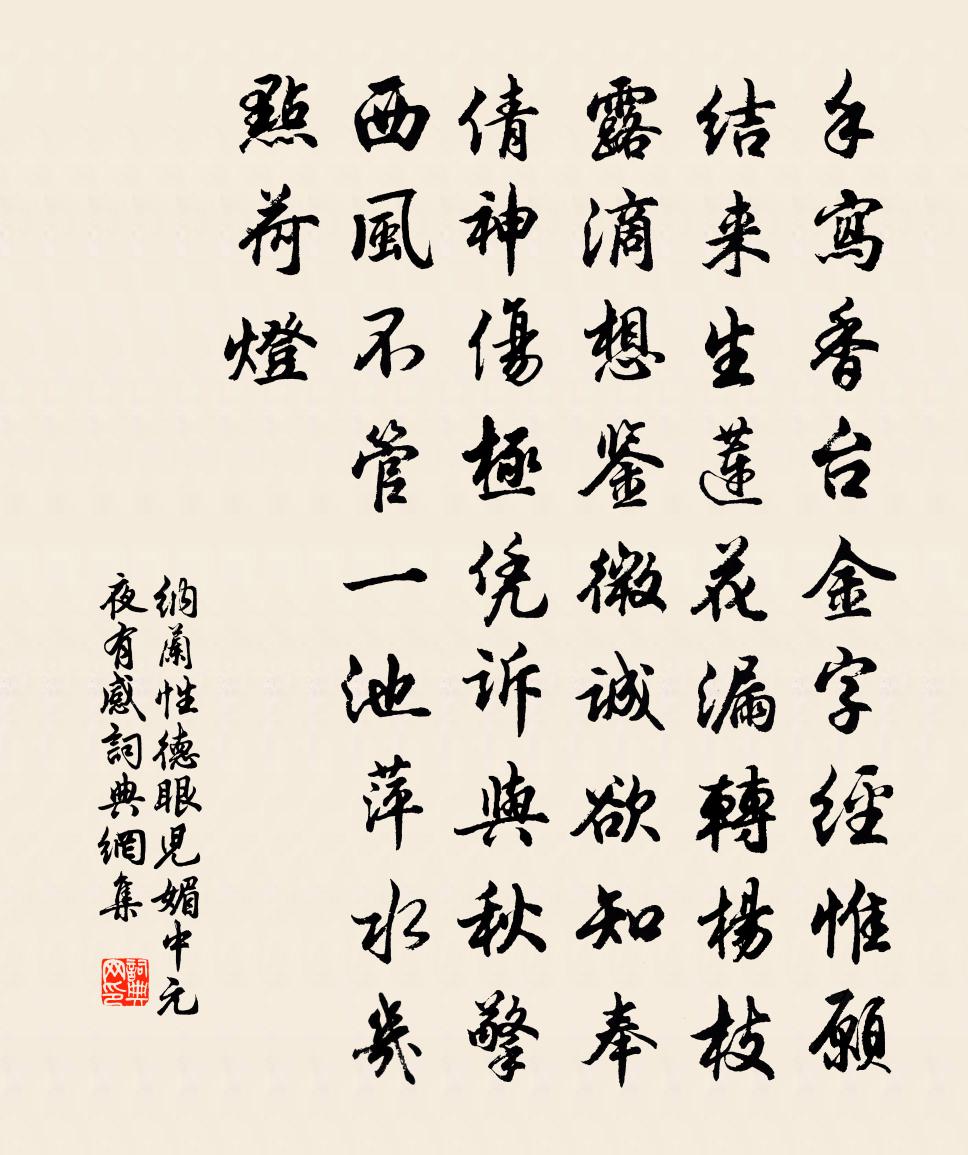 手寫香台金字經惟願
結来生蓮花漏轉楊枝
露滴想鉴微誠欲知奉
倩神傷極凭訴與秋擎
西風不管一池萍水幾
點荷燈
納蘭性德眼兒媚中元
夜有感詞典網集
詞典网印